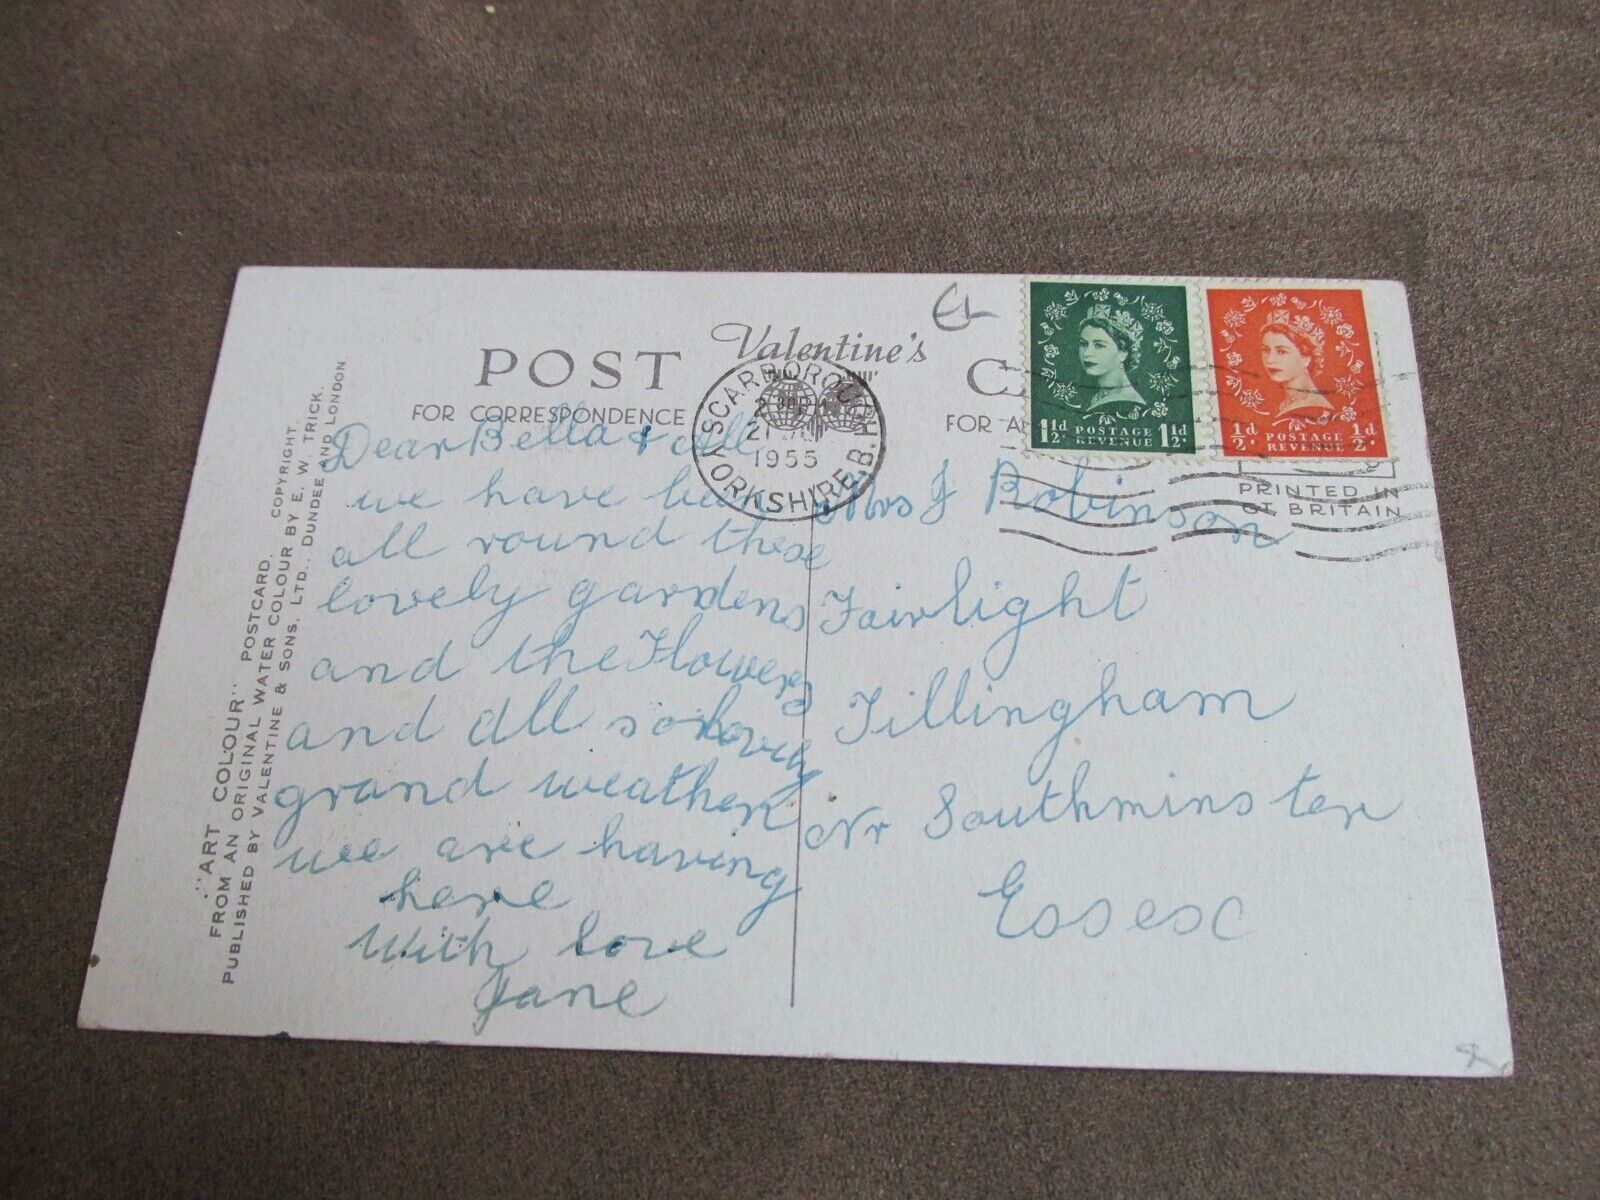 POST Valentine's C
FOR CORRESPONDENCE
FOR A
SCARBOROUGH
2
21 JU
1955
YORKSHIRE.B.
1½d. POSTAGE REVENUE 1½d.
½d. POSTAGE REVENUE ½d.
PRINTED IN
GT BRITAIN
Dear Bella & All
we have be
all round these
lovely gardens
and the Flowers
and all so lovely
grand weather
we are having
here
With love
Jane
Mrs J Robinson
Fairlight
Tillingham
Nr Southminster
Essex
"ART COLOUR" POSTCARD. COPYRIGHT.
FROM AN ORIGINAL WATER COLOUR BY E. W. TRICK.
PUBLISHED BY VALENTINE & SONS. LTD., DUNDEE AND LONDON